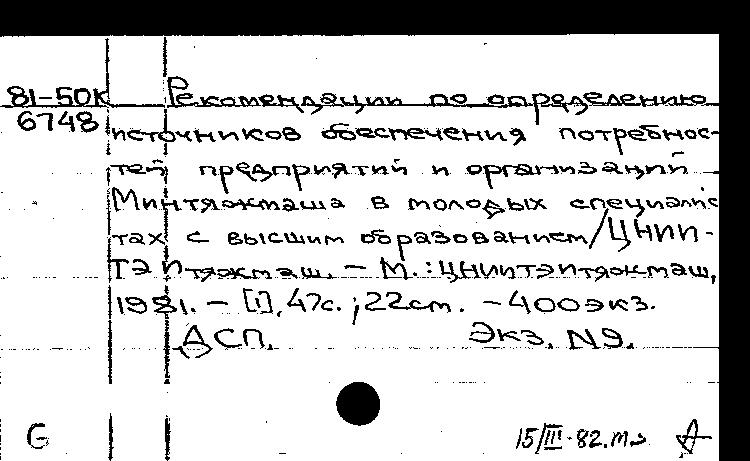 81-50К Рекомендации по определению
6748 источников обеспечения потребнос-
тей предприятий и организаций
Минтяжмаша в молодых специалис
тах с высшим образованием/ЦНИИ-
ТЭИтяжмаш. – М.: ЦНИИТЭИтяжмаш,
1981. – [1], 47с.; 22см. – 400экз.
ДСП. Экз. N9.
G 15/III-82.